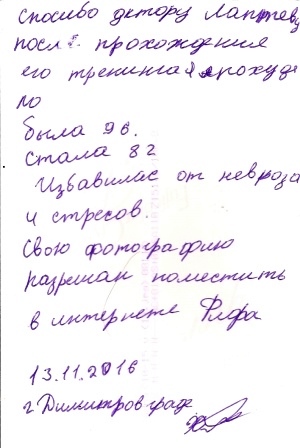 спосибо дктору Лаптеву
после прохождения
его тренинга я прохуде
ло
была 96.
Стала 82
Избавилас от невроза
и стресов.
Свою фотографию
разрешаю поместить
в интернете
13.11.2016
г Димитровград